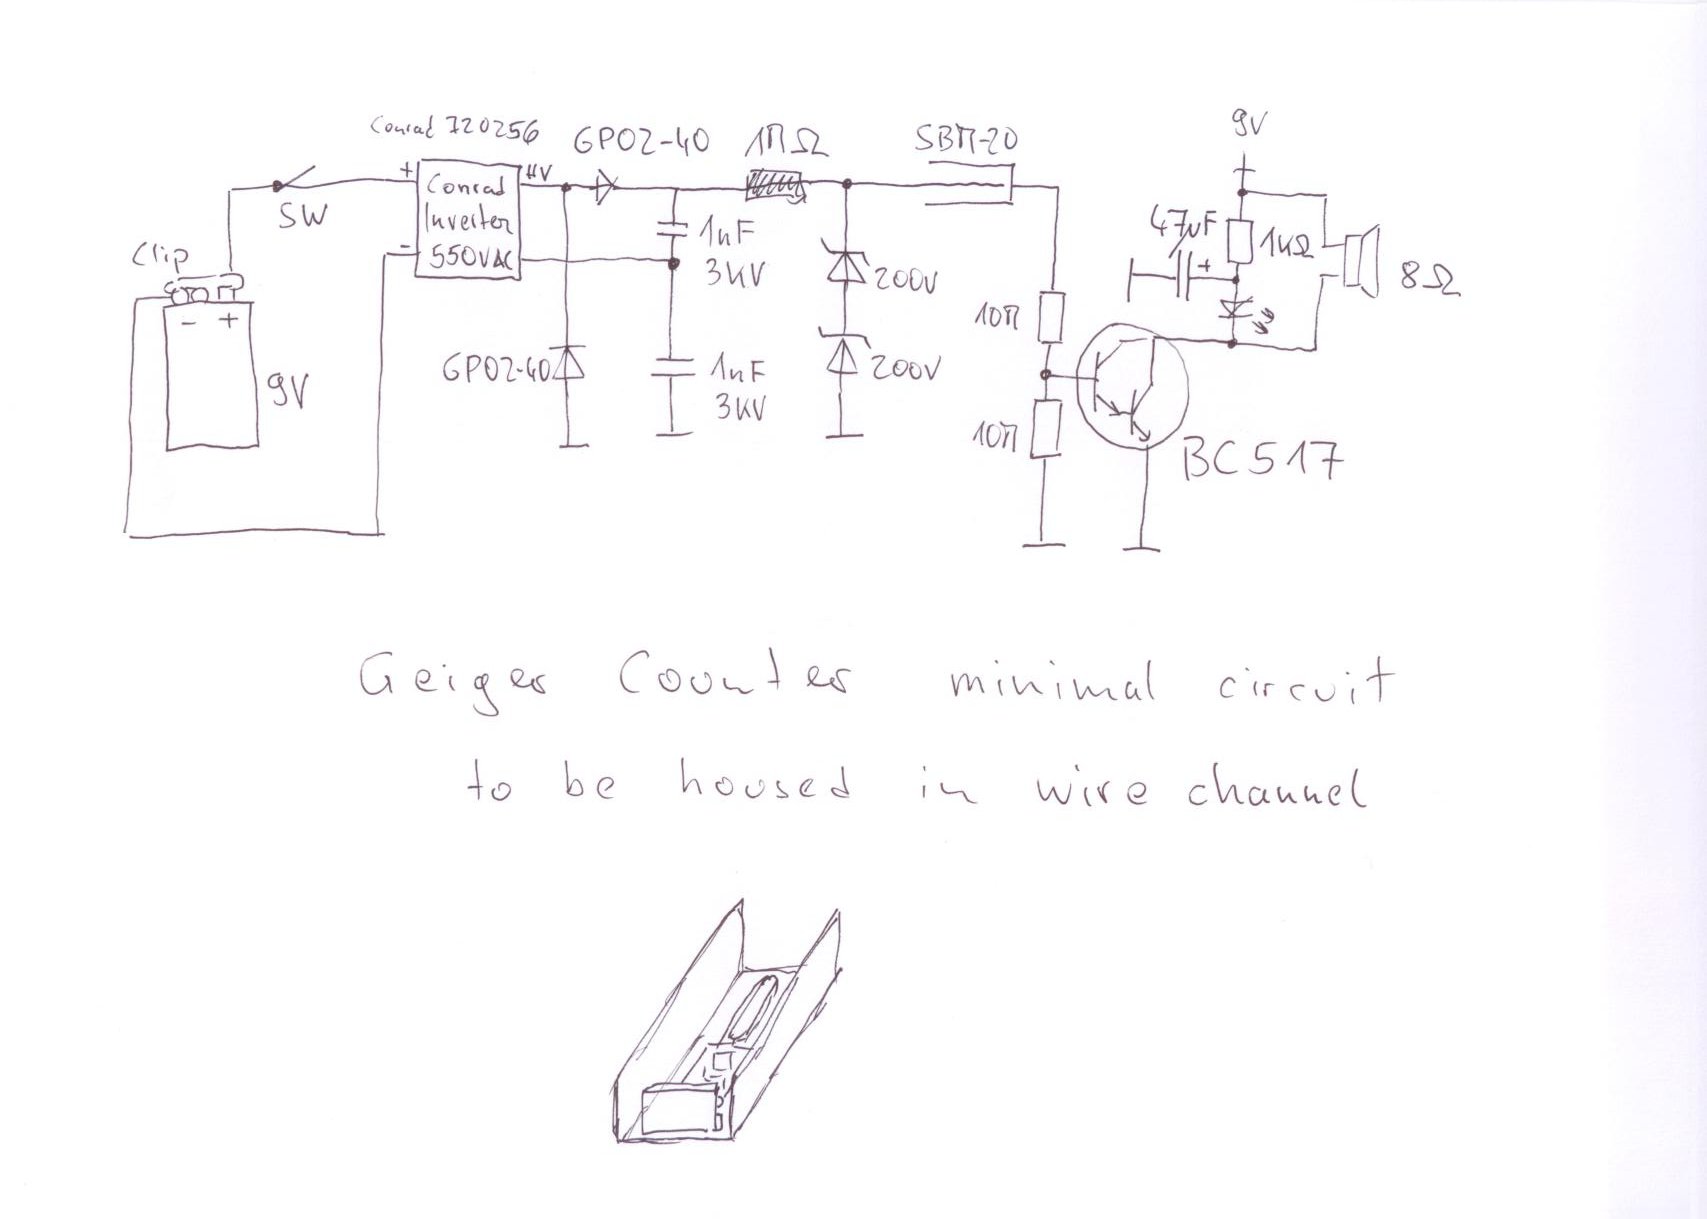 Conrad 720256
GP02-40
1MΩ
SBM-20
9V
+
HV
Conrad
Inverter
550VAC
-
SW
Clip
- +
9V
1nF
3KV
GP02-40
1nF
3KV
200V
200V
10M
10M
47uF
+
1KΩ
8Ω
BC517
Geiger Counter minimal circuit
to be housed in wire channel